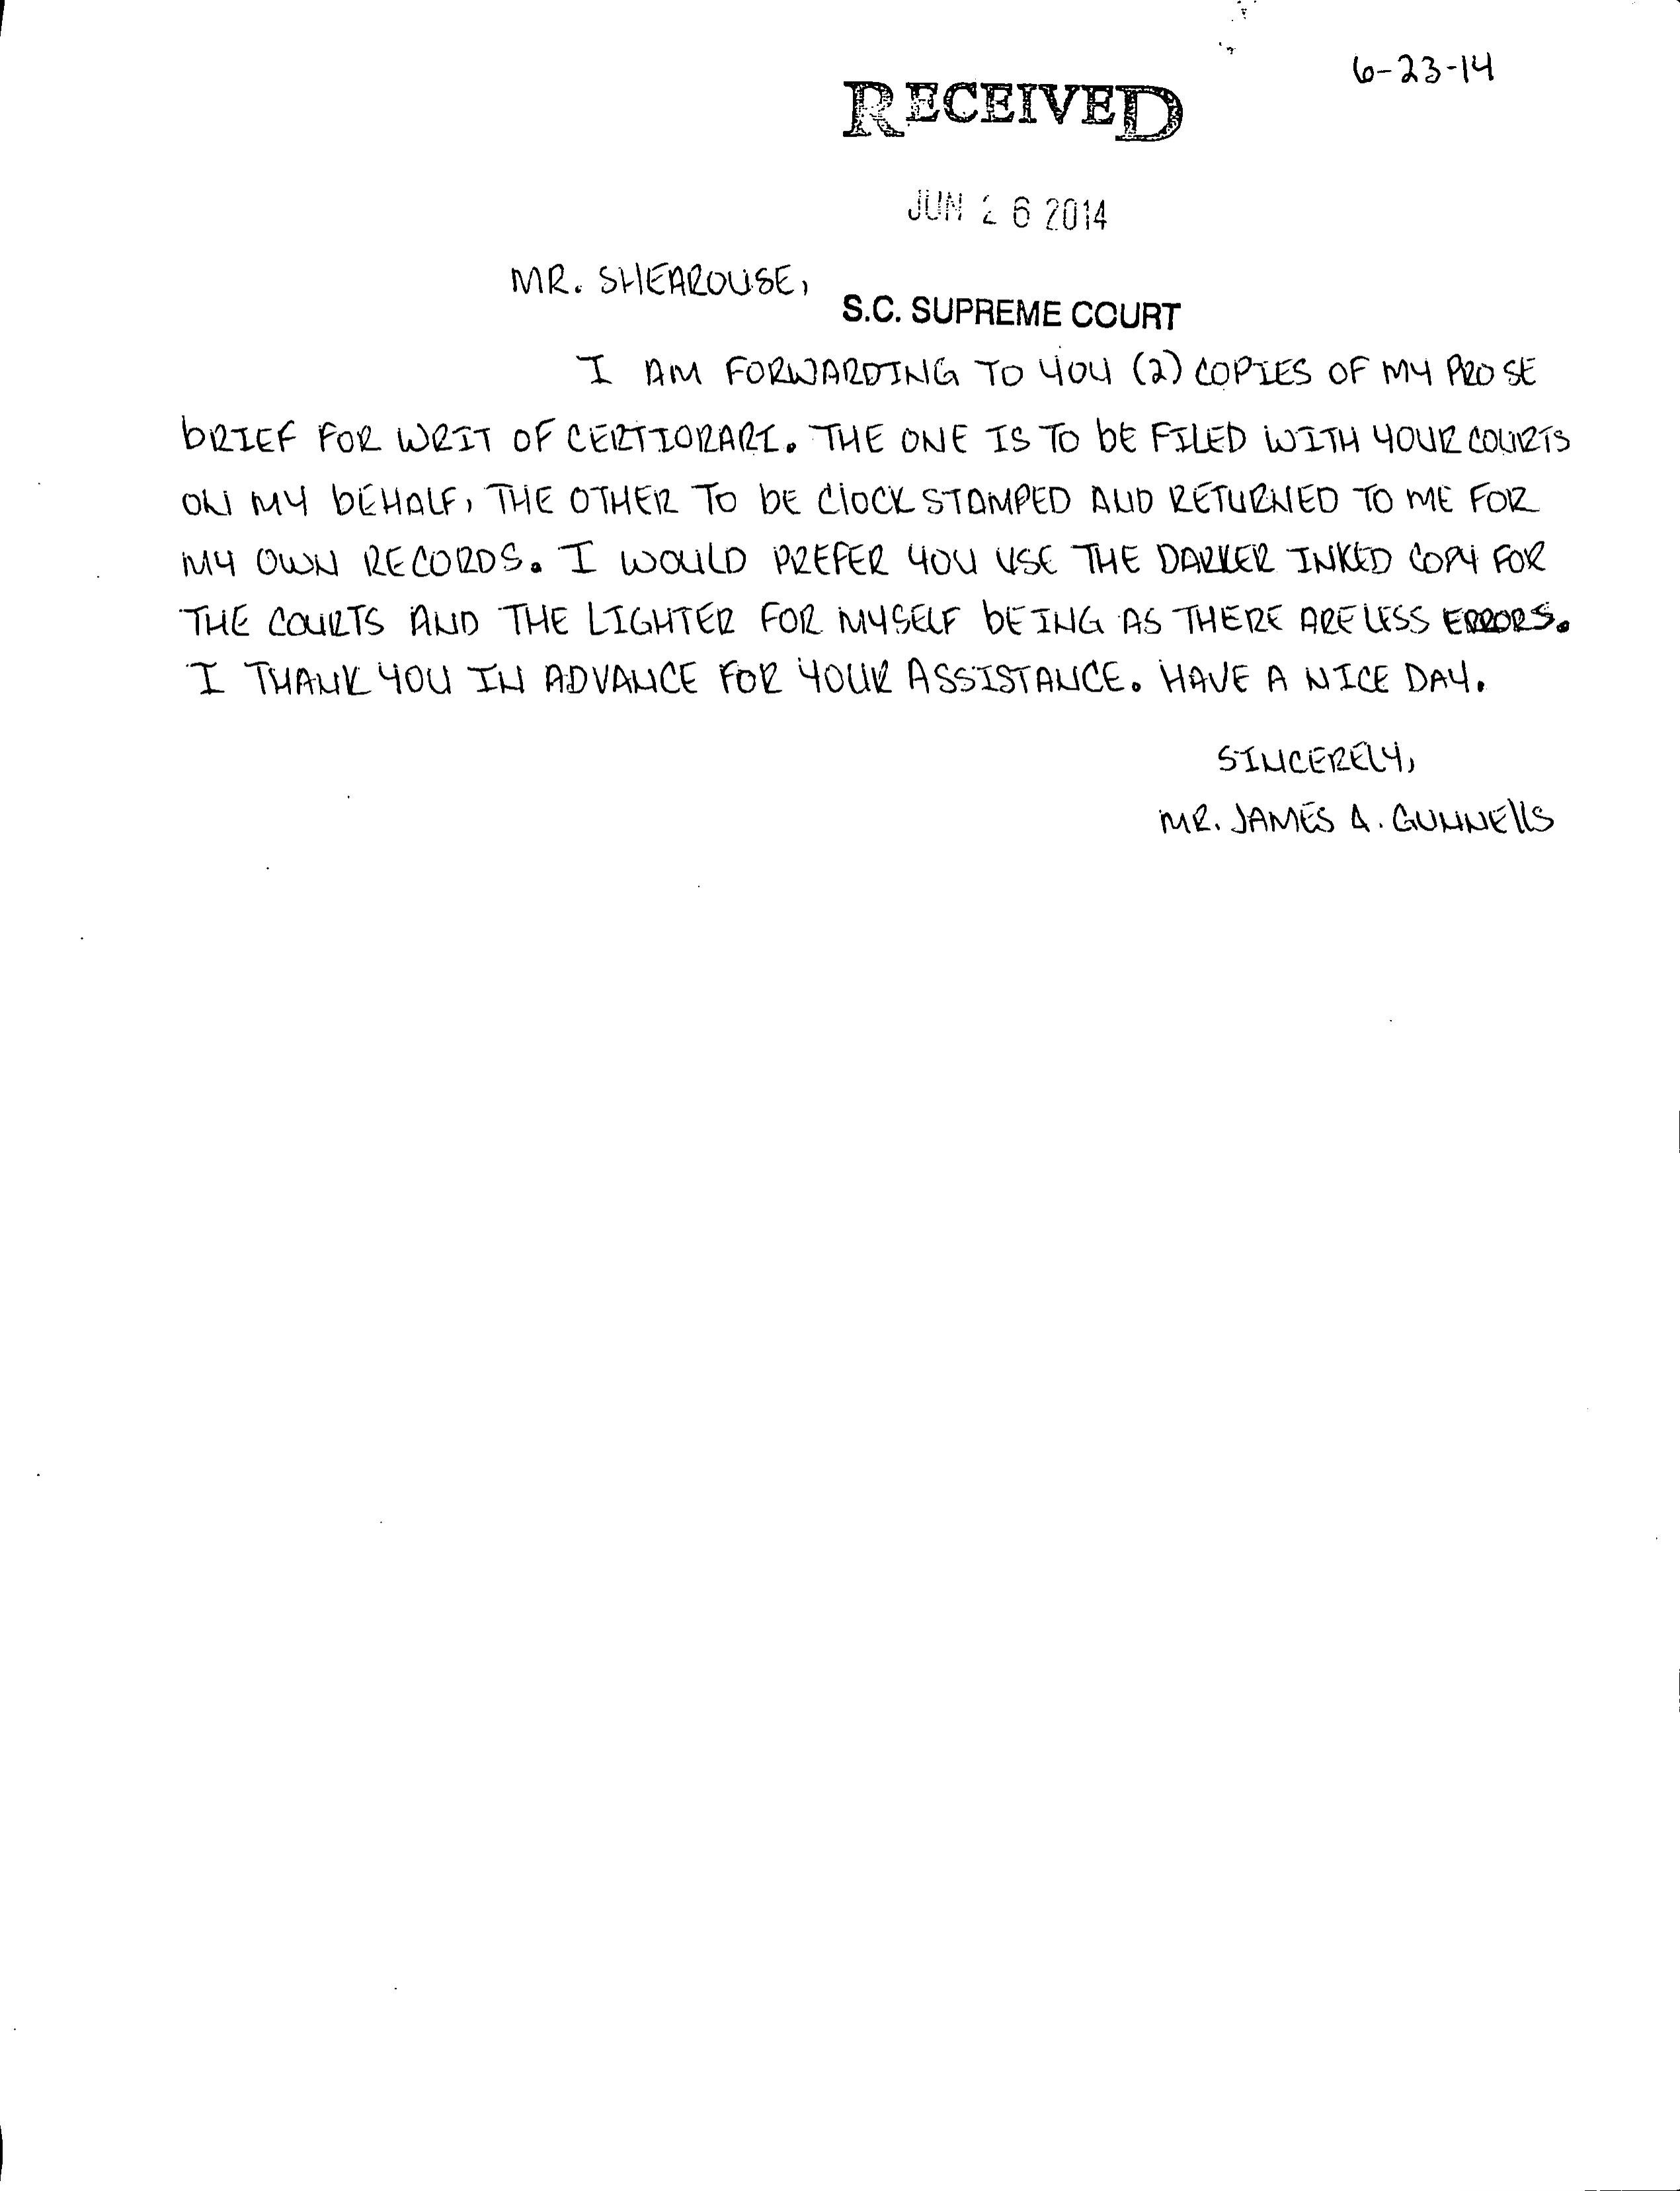 6-23-14
RECEIVED
JUN 26 2014
MR. SHEAROUSE,
S.C. SUPREME COURT
I AM FORWARDING TO YOU (2) COPIES OF MY PRO SE
BRIEF FOR WRIT OF CERTIORARI. THE ONE IS TO BE FILED WITH YOUR COURTS
ON MY BEHALF, THE OTHER TO BE CLOCK STAMPED AND RETURNED TO ME FOR
MY OWN RECORDS. I WOULD PREFER YOU USE THE DARKER INKED COPY FOR
THE COURTS AND THE LIGHTER FOR MYSELF BEING AS THERE ARE LESS ERRORS.
I THANK YOU IN ADVANCE FOR YOUR ASSISTANCE. HAVE A NICE DAY.
SINCERELY,
MR. JAMES A. GUNNELLS